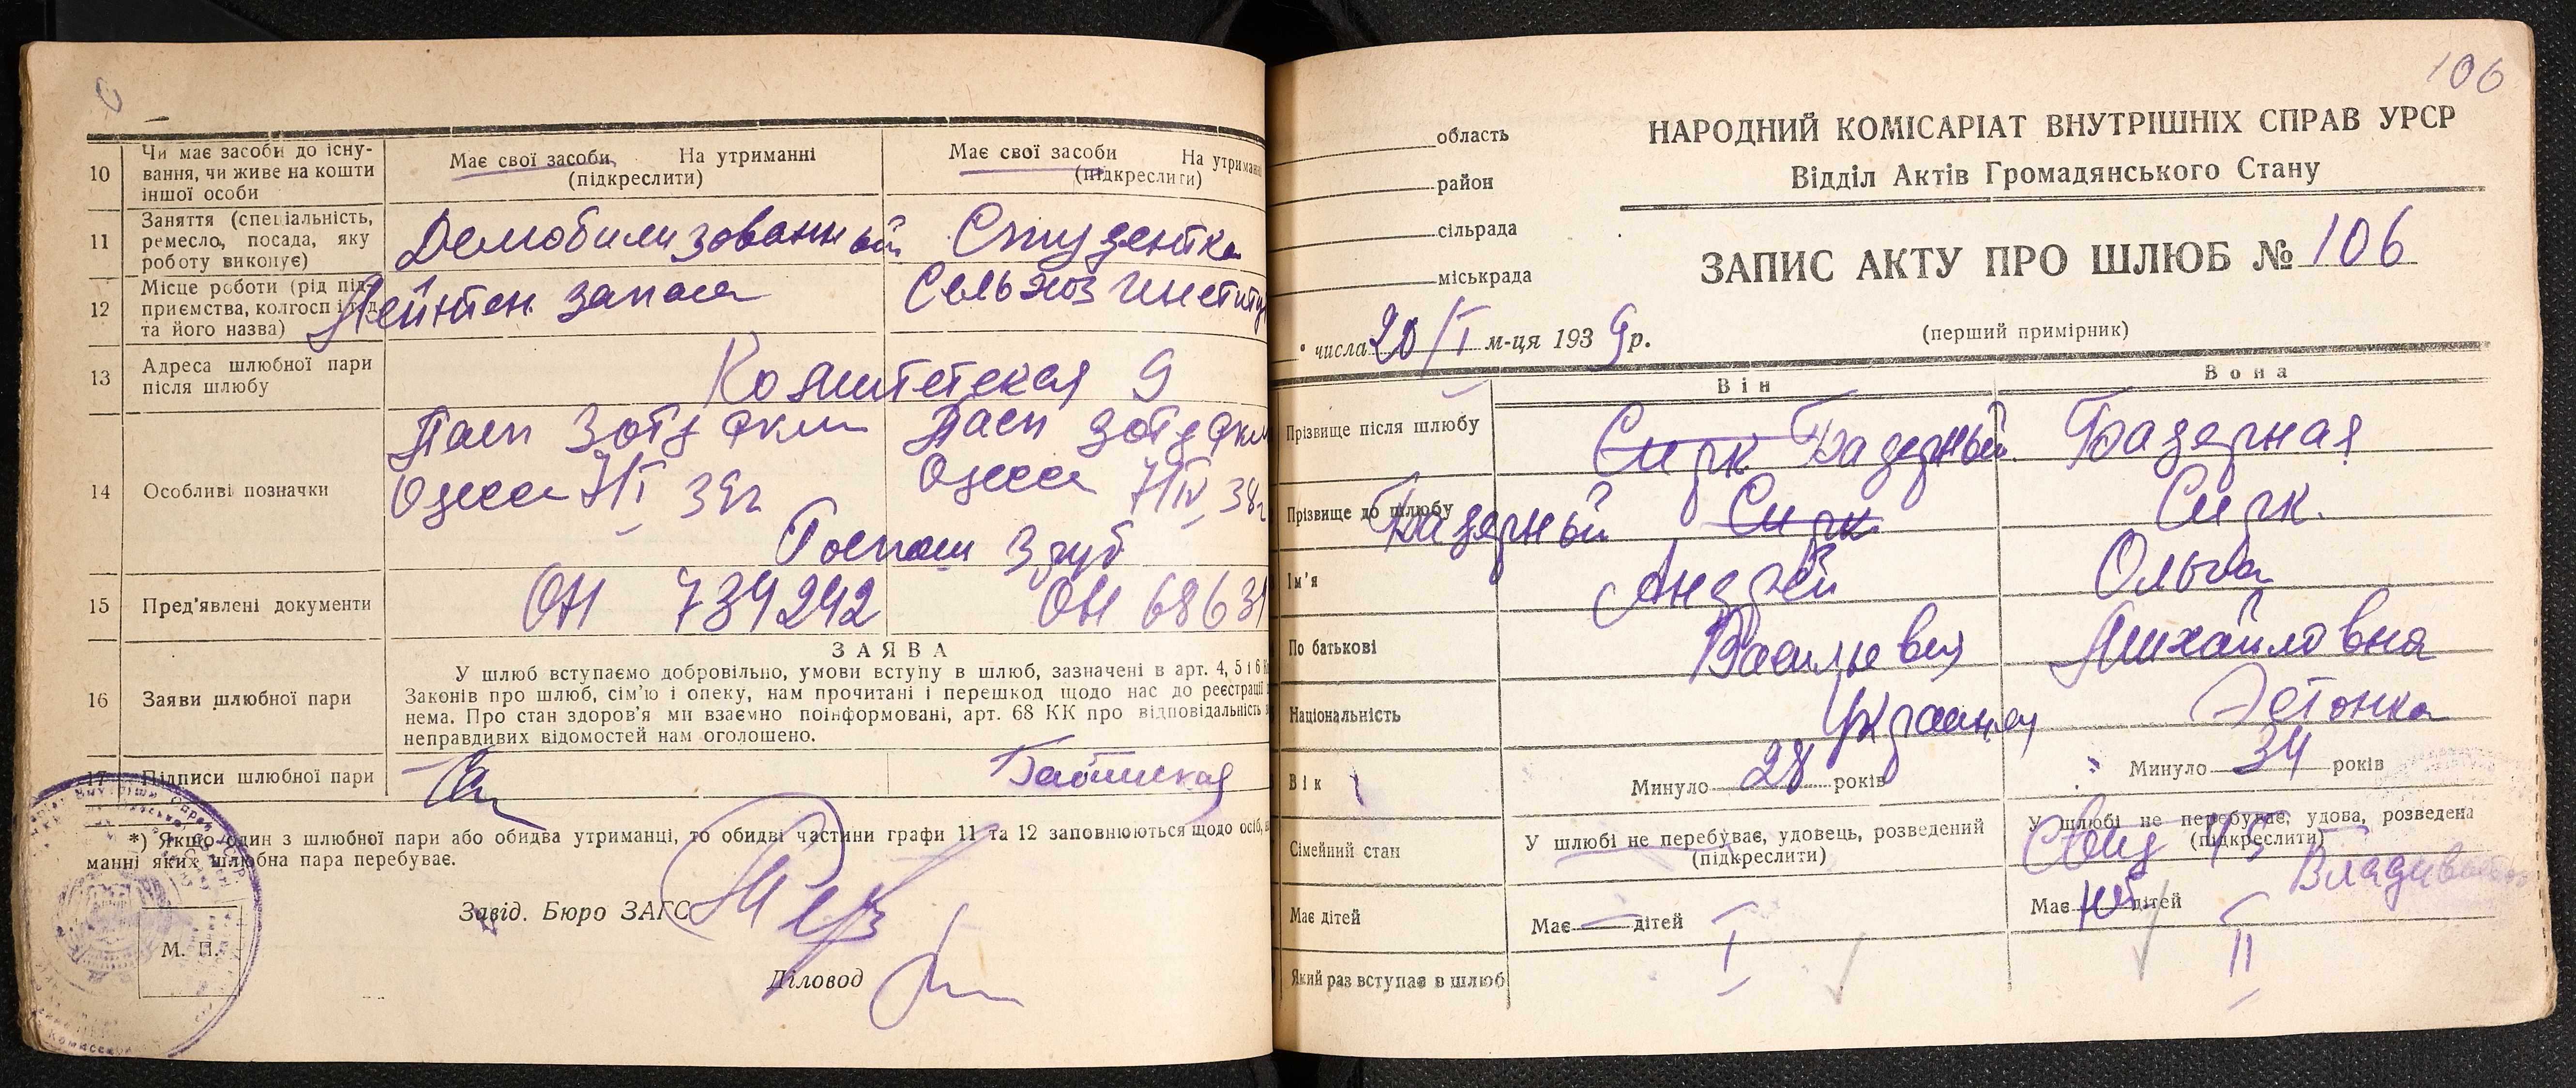 10 Чи має засоби до існування, чи живе на кошти іншої особи
Має свої засоби На утриманні
(підкреслити)
Має свої засоби На утриманні
(підкреслити)
11 Заняття (спеціальність, ремесло, посада, яку роботу виконує)
Демобилизованный
Студентка
12 Місце роботи (рід підприємства, колгосп і
та його назва)
Лейтен. запаса
Сельхоз Институ
13 Адреса шлюбної пари після шлюбу
Комитетская 9
14 Особливі позначки
Пасп 3 от
Одесса 7/I 39г
Пасп 3 от
Одесса 7/IV 38г
Госпош 3 руб
15 Пред'явлені документи
ОН 734242
ОН 68631
16 Заяви шлюбної пари
ЗАЯВА
У шлюб вступаємо добровільно, умови вступу в шлюб, зазначені в арт. 4, 5 і 6
Законів про шлюб, сім'ю і опеку, нам прочитані і перешкод щодо нас до реєстрації
нема. Про стан здоров'я ми взаємно поінформовані, арт. 68 КК про відповідальність
неправдивих відомостей нам оголошено.
17 Підписи шлюбної пари
*) Якщо один з шлюбної пари або обидва утриманці, то обидві частини графи 11 та 12 заповнюються щодо осіб,
манні яких шлюбна пара перебуває.
Завід. Бюро ЗАГС
Діловод
М. П.
106
область
район
сільрада
міськрада
НАРОДНИЙ КОМІСАРІАТ ВНУТРІШНІХ СПРАВ УРСР
Відділ Актів Громадянського Стану
ЗАПИС АКТУ ПРО ШЛЮБ № 106
числа 20/I м-ця 1939 р.
(перший примірник)
Він
Вона
Прізвище після шлюбу
Сирк Бадерный
Бадерная
Прізвище до шлюбу
Бадерный Сирк
Сирк.
Ім'я
Андрей
Ольга
По батькові
Васильевич
Михайловна
Національність
Украинец
Эстонка
Вік
Минуло 28 років
Минуло 34 років
Сімейний стан
У шлюбі не перебуває, удовець, розведений
(підкреслити)
У шлюбі не перебуває, удова, розведена
(підкреслити)
Владивосток
Має дітей
Має — дітей
Має нет дітей
Який раз вступає в шлюб
I
II